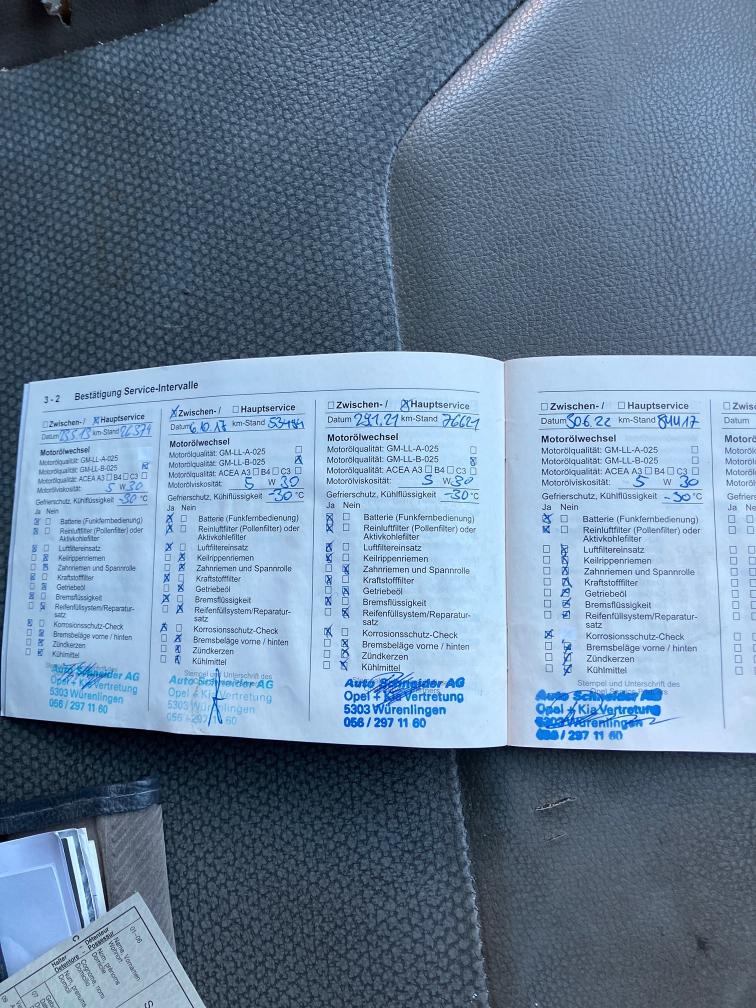 3 - 2 Bestätigung Service-Intervalle
☐ Zwischen- / ☒ Hauptservice
Datum km-Stand
Motorölwechsel
Motorölqualität: GM-LL-A-025
Motorölqualität: GM-LL-B-025 ☒
Motorölqualität: ACEA A3 ☐ B4 ☐ C3 ☐
Motorölviskosität: 5 W 30
Gefrierschutz, Kühlflüssigkeit -30 °C
Ja Nein
Batterie (Funkfernbedienung)
Reinluftfilter (Pollenfilter) oder
Aktivkohlefilter
Luftfiltereinsatz
Keilrippenriemen
Zahnriemen und Spannrolle
Kraftstofffilter
Getriebeöl
Bremsflüssigkeit
Reifenfüllsystem/Reparatur-
satz
Korrosionsschutz-Check
Bremsbeläge vorne / hinten
Zündkerzen
Kühlmittel
Auto Schneider AG
Opel + Kia Vertretung
5303 Würenlingen
056 / 297 11 60
☒ Zwischen- / ☐ Hauptservice
Datum 6.10.17 km-Stand
Motorölwechsel
Motorölqualität: GM-LL-A-025
Motorölqualität: GM-LL-B-025 ☒
Motorölqualität: ACEA A3 ☐ B4 ☐ C3 ☐
Motorölviskosität: 5 W 30
Gefrierschutz, Kühlflüssigkeit -30 °C
Ja Nein
Batterie (Funkfernbedienung)
Reinluftfilter (Pollenfilter) oder
Aktivkohlefilter
Luftfiltereinsatz
Keilrippenriemen
Zahnriemen und Spannrolle
Kraftstofffilter
Getriebeöl
Bremsflüssigkeit
Reifenfüllsystem/Reparatur-
satz
Korrosionsschutz-Check
Bremsbeläge vorne / hinten
Zündkerzen
Kühlmittel
Stempel und Unterschrift des
Auto Schneider AG
Opel + Kia Vertretung
5303 Würenlingen
056 / 297 11 60
☐ Zwischen- / ☒ Hauptservice
Datum 29.1.21 km-Stand 76621
Motorölwechsel
Motorölqualität: GM-LL-A-025 ☐
Motorölqualität: GM-LL-B-025 ☒
Motorölqualität: ACEA A3 ☐ B4 ☐ C3 ☐
Motorölviskosität: 5 W 30
Gefrierschutz, Kühlflüssigkeit -30 °C
Ja Nein
Batterie (Funkfernbedienung)
Reinluftfilter (Pollenfilter) oder
Aktivkohlefilter
Luftfiltereinsatz
Keilrippenriemen
Zahnriemen und Spannrolle
Kraftstofffilter
Getriebeöl
Bremsflüssigkeit
Reifenfüllsystem/Reparatur-
satz
Korrosionsschutz-Check
Bremsbeläge vorne / hinten
Zündkerzen
Kühlmittel
Auto Schneider AG
Opel + Kia Vertretung
5303 Würenlingen
056 / 297 11 60
☐ Zwischen- / ☐ Hauptservice
Datum 30.6.22 km-Stand
Motorölwechsel
Motorölqualität: GM-LL-A-025 ☐
Motorölqualität: GM-LL-B-025 ☐
Motorölqualität: ACEA A3 ☐ B4 ☐ C3 ☐
Motorölviskosität: 5 W 30
Gefrierschutz, Kühlflüssigkeit -30 °C
Ja Nein
Batterie (Funkfernbedienung)
Reinluftfilter (Pollenfilter) oder
Aktivkohlefilter
Luftfiltereinsatz
Keilrippenriemen
Zahnriemen und Spannrolle
Kraftstofffilter
Getriebeöl
Bremsflüssigkeit
Reifenfüllsystem/Reparatur-
satz
Korrosionsschutz-Check
Bremsbeläge vorne / hinten
Zündkerzen
Kühlmittel
Stempel und Unterschrift des
Auto Schneider AG
Opel + Kia Vertretung
5303 Würenlingen
056 / 297 11 60
Datum
Motor
Ja
01-06
Name, Vornamen
Wohnort
Nom, prénoms
Domicile
Cognome, nomi
Domicilio
Halter
Détenteur